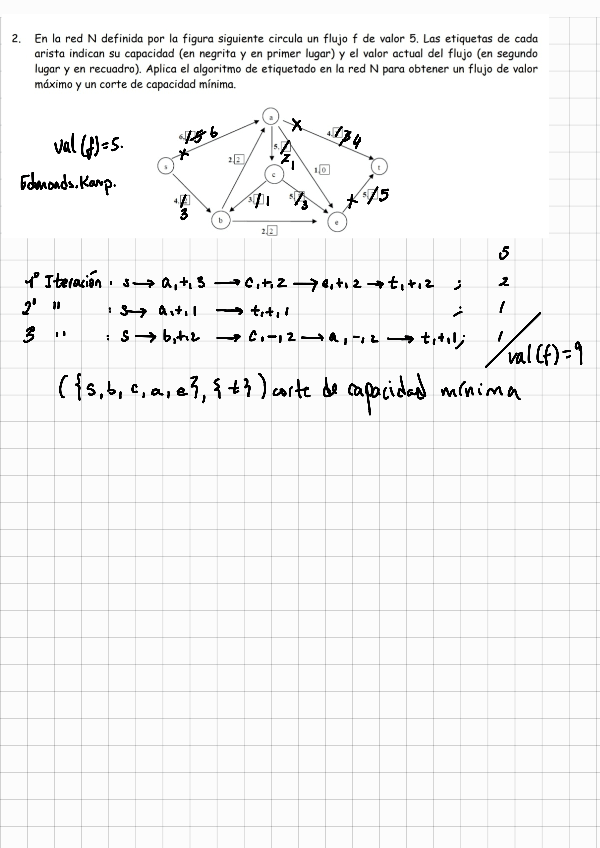 2. En la red N definida por la figura siguiente circula un flujo f de valor 5. Las etiquetas de cada
arista indican su capacidad (en negrita y en primer lugar) y el valor actual del flujo (en segundo
lugar y en recuadro). Aplica el algoritmo de etiquetado en la red N para obtener un flujo de valor
máximo y un corte de capacidad mínima.
val(f)=5.
Edmonds.Karp.
a
s
c
t
b
e
2, 2
1, 0
2, 2
1º Iteración : s → a,+,3 → c,+,2 → e,+,2 → t,+,2 ; 2
2' " : s → a,+,1 → t,+,1 ; 1
3 '' : s → b,+,2 → c,-,2 → a,-,2 → t,+,1; 1
5
val(f)=9
({s,b,c,a,e},{t}) corte de capacidad mínima